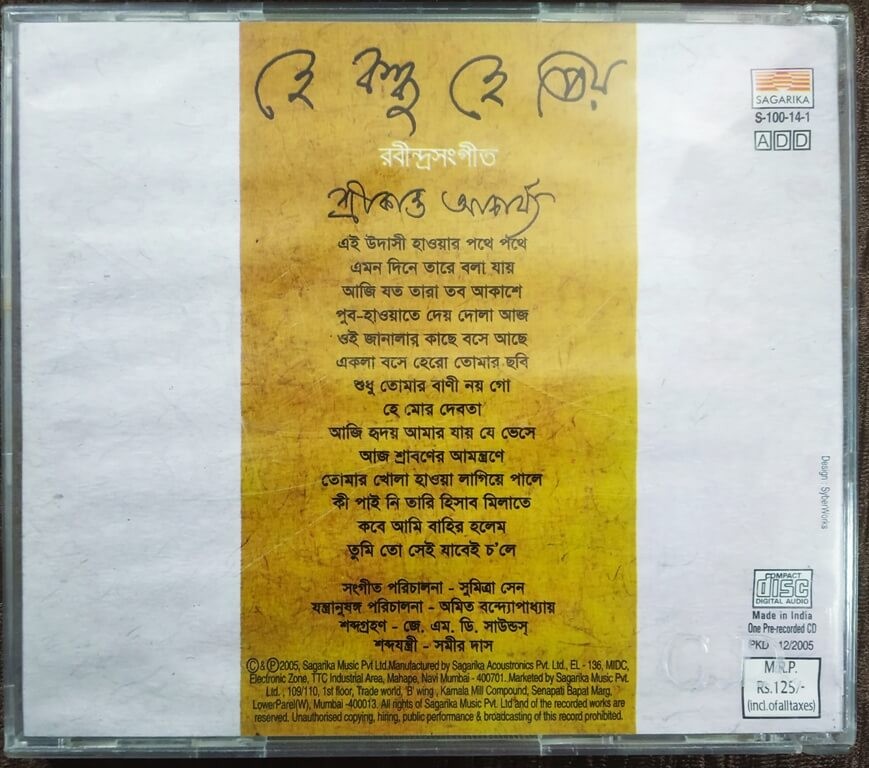 হে বন্ধু হে প্রিয়
রবীন্দ্রসংগীত
শ্রীকান্ত আচার্য্য
এই উদাসী হাওয়ার পথে পথে
এমন দিনে তারে বলা যায়
আজি যত তারা তব আকাশে
পুব-হাওয়াতে দেয় দোলা আজ
ওই জানালার কাছে বসে আছে
একলা বসে হেরো তোমার ছবি
শুধু তোমার বাণী নয় গো
হে মোর দেবতা
আজি হৃদয় আমার যায় যে ভেসে
আজ শ্রাবণের আমন্ত্রণে
তোমার খোলা হাওয়া লাগিয়ে পালে
কী পাই নি তারি হিসাব মিলাতে
কবে আমি বাহির হলেম
তুমি তো সেই যাবেই চ'লে
সংগীত পরিচালনা - সুমিত্রা সেন
যন্ত্রানুষঙ্গ পরিচালনা - অমিত বন্দ্যোপাধ্যায়
শব্দগ্রহণ - জে. এম. ডি. সাউন্ডস্
শব্দযন্ত্রী - সমীর দাস
©&℗2005, Sagarika Music Pvt Ltd.Manufactured by Sagarika Acoustronics Pvt. Ltd., EL - 136, MIDC,
Electronic Zone, TTC Industrial Area, Mahape, Navi Mumbai - 400701. Marketed by Sagarika Music Pvt.
Ltd. , 109/110, 1st floor, Trade world, 'B' wing , Kamala Mill Compound, Senapati Bapat Marg,
LowerParel(W), Mumbai -400013. All rights of Sagarika Music Pvt. Ltd and of the recorded works are
reserved. Unauthorised copying, hiring, public performance & broadcasting of this record prohibited.
SAGARIKA
S-100-14-1
ADD
Design : SyberWorks
COMPACT
disc
DIGITAL AUDIO
Made in India
One Pre-recorded CD
PKD 12/2005
M.R.P.
Rs.125/-
(incl.of all taxes)